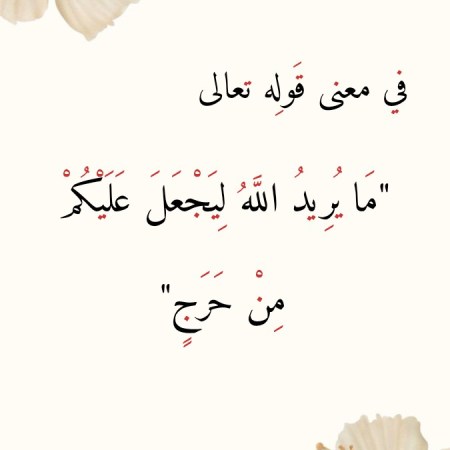 في معنى قَولِه تعالى
"مَا يُرِيدُ اللَّهُ لِيَجْعَلَ عَلَيْكُمْ
مِنْ حَرَجٍ"